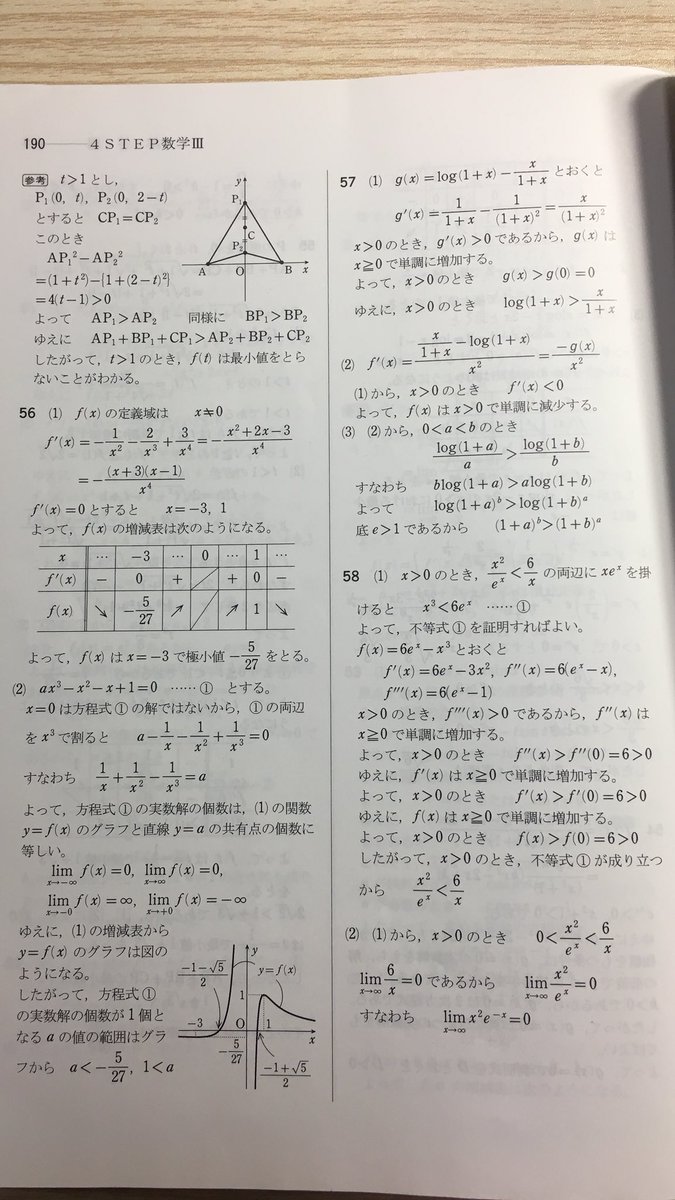 190 4STEP数学Ⅲ
参考 t>1とし,
P₁(0, t), P₂(0, 2−t)
とすると CP₁=CP₂
このとき
AP₁²−AP₂²
=(1+t²)−{1+(2−t)²}
=4(t−1)>0
よって AP₁>AP₂ 同様に BP₁>BP₂
ゆえに AP₁+BP₁+CP₁>AP₂+BP₂+CP₂
したがって, t>1のとき, f(t) は最小値をとら
ないことがわかる。
y
P₁
C
P₂
A O B x
56 (1) f(x) の定義域は x≠0
f′(x)=−1/x²−2/x³+3/x⁴=−(x²+2x−3)/x⁴
=−(x+3)(x−1)/x⁴
f′(x)=0とすると x=−3, 1
よって, f(x) の増減表は次のようになる。
x … −3 … 0 … 1 …
f′(x) − 0 + + 0 −
f(x) ↘ −5/27 ↗ ↗ 1 ↘
よって, f(x) は x=−3 で極小値 −5/27 をとる。
(2) ax³−x²−x+1=0 ……① とする。
x=0 は方程式①の解ではないから, ①の両辺
を x³ で割ると a−1/x−1/x²+1/x³=0
すなわち 1/x+1/x²−1/x³=a
よって, 方程式①の実数解の個数は, (1)の関数
y=f(x) のグラフと直線 y=a の共有点の個数に
等しい。
lim x→−∞ f(x)=0, lim x→∞ f(x)=0,
lim x→−0 f(x)=∞, lim x→+0 f(x)=−∞
ゆえに, (1)の増減表から
y=f(x) のグラフは図の
ようになる。
したがって, 方程式①
の実数解の個数が1個と
なる a の値の範囲はグラ
フから a<−5/27, 1<a
y
(−1−√5)/2
y=f(x)
1
−3 O 1 x
−5/27
(−1+√5)/2
57 (1) g(x)=log(1+x)−x/(1+x) とおくと
g′(x)=1/(1+x)−1/(1+x)²=x/(1+x)²
x>0のとき, g′(x)>0であるから, g(x) は
x≧0で単調に増加する。
よって, x>0のとき g(x)>g(0)=0
ゆえに, x>0のとき log(1+x)>x/(1+x)
(2) f′(x)=(x/(1+x)−log(1+x))/x²=−g(x)/x²
(1)から, x>0のとき f′(x)<0
よって, f(x) は x>0 で単調に減少する。
(3) (2)から, 0<a<b のとき
log(1+a)/a>log(1+b)/b
すなわち blog(1+a)>alog(1+b)
よって log(1+a)ᵇ>log(1+b)ᵃ
底 e>1 であるから (1+a)ᵇ>(1+b)ᵃ
58 (1) x>0のとき, x²/eˣ<6/x の両辺に xeˣ を掛
けると x³<6eˣ ……①
よって, 不等式①を証明すればよい。
f(x)=6eˣ−x³ とおくと
f′(x)=6eˣ−3x², f″(x)=6(eˣ−x),
f‴(x)=6(eˣ−1)
x>0のとき, f‴(x)>0であるから, f″(x) は
x≧0で単調に増加する。
よって, x>0のとき f″(x)>f″(0)=6>0
ゆえに, f′(x) は x≧0 で単調に増加する。
よって, x>0のとき f′(x)>f′(0)=6>0
ゆえに, f(x) は x≧0 で単調に増加する。
よって, x>0のとき f(x)>f(0)=6>0
したがって, x>0のとき, 不等式①が成り立つ
から x²/eˣ<6/x
(2) (1)から, x>0のとき 0<x²/eˣ<6/x
lim x→∞ 6/x=0 であるから lim x→∞ x²/eˣ=0
すなわち lim x→∞ x²e⁻ˣ=0